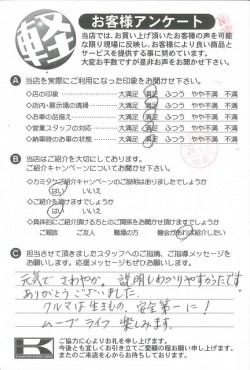 軽 お客様アンケート
当店では、お買い上げ頂いたお客様の声を可能
な限り現場に反映し、お客様により良い商品と
サービスを提供する事に努めております。
大変お手数ですが是非お声をお聞かせ下さい。
A 当店を実際にご利用になった印象をお聞かせ下さい。
◇店の印象 大満足 満足 ふつう やや不満 不満
◇店内・展示場の清掃 大満足 満足 ふつう やや不満 不満
◇お車の品揃え 大満足 満足 ふつう やや不満 不満
◇営業スタッフの対応 大満足 満足 ふつう やや不満 不満
◇納車時のお車の状態 大満足 満足 ふつう やや不満 不満
B 当店はご紹介を大切にしております。
ご紹介キャンペーンについてお聞かせ下さい。
◇カミタケご紹介キャンペーンのご説明はありましたでしょうか
はい いいえ
◇ご紹介を頂けますでしょうか
はい いいえ
◇具体的にご紹介頂ける方とのご関係をお聞かせ頂けますでしょうか
ご親族 ご友人 職場の方 機会があれば紹介したい
C 担当させて頂きましたスタッフへのご指摘、ご指導メッセージを
お願いします。応援メッセージもぜひお願いします。
元気で さわやか。説明もわかりやすかったです
ありがとうございました。
クルマは生きもの、安全第一に!
ムーブライフ 楽しみます。
K
ご協力に心よりお礼を申し上げます。
今後とも宜しくお引き立てご愛顧の程お願い申し上げます。
またのご来店を心からお待ちしております。